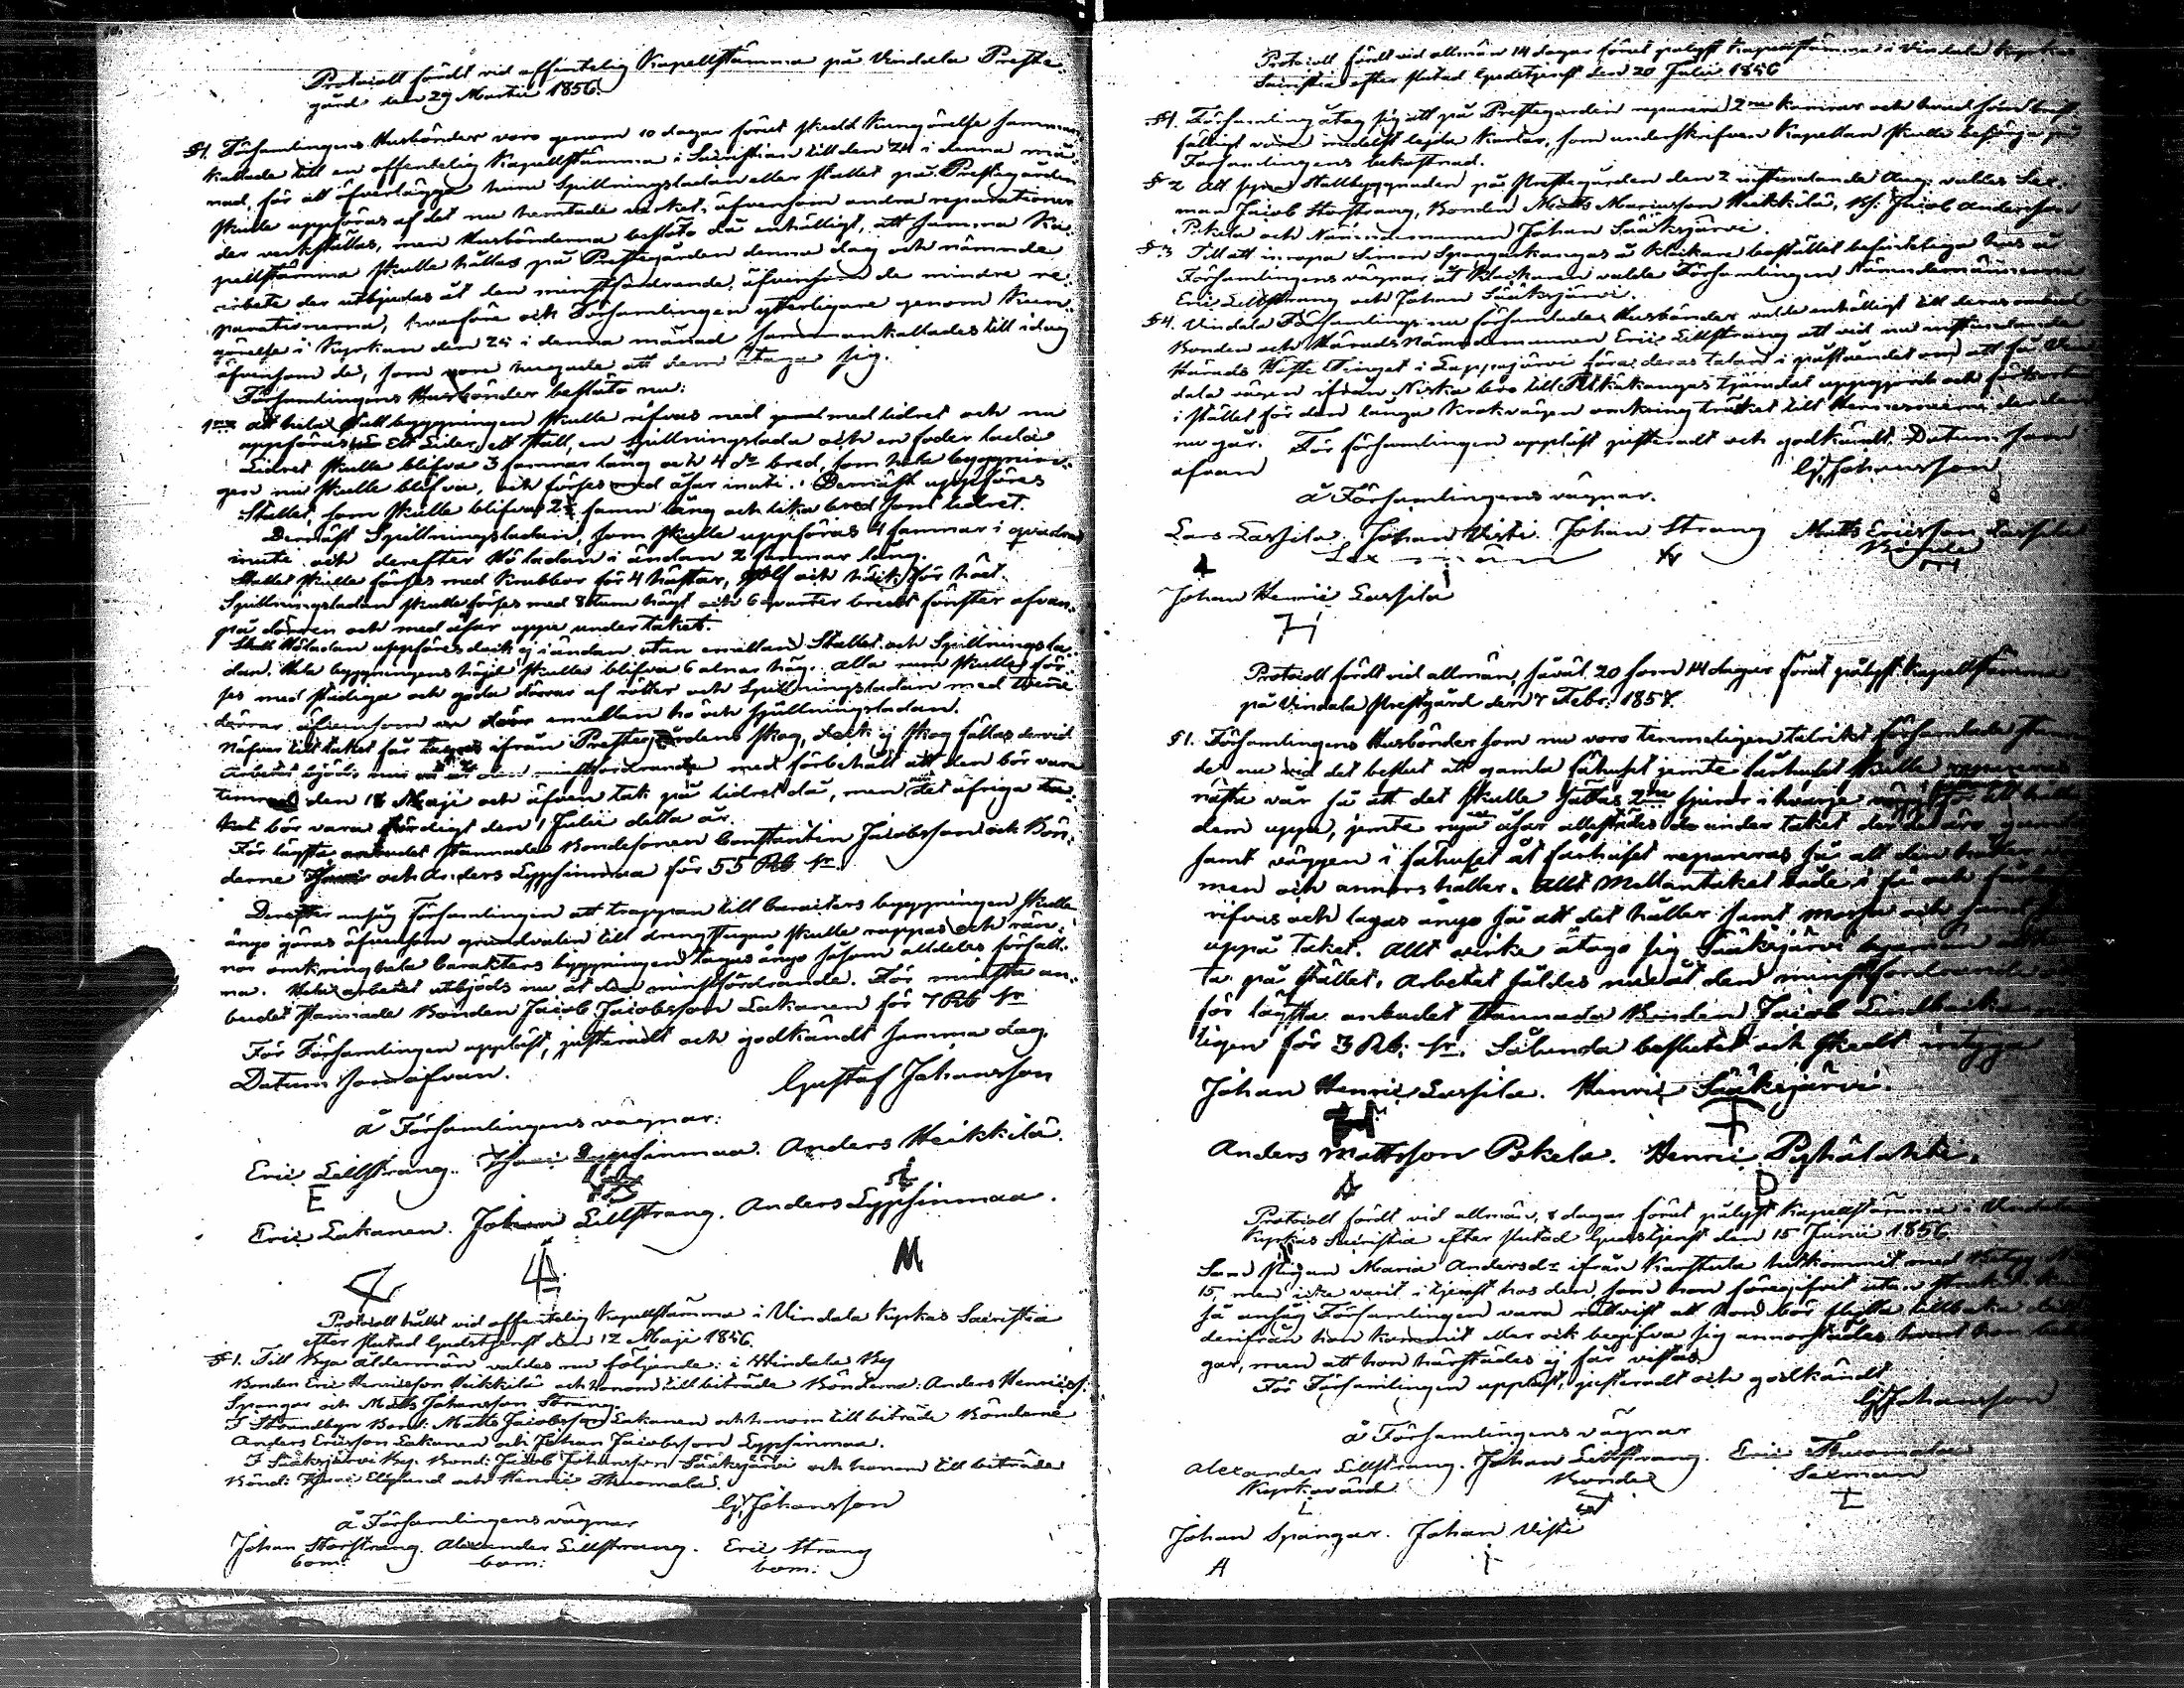 Protocoll fördt vid offentelig Kapellstämma på Vindala Preste-
gård den 29 Martii 1856.
§1. Församlingens Husbönder voro genom 10 dagar förut skedd Kungörelse samman
kallade till en offentelig Kapellstämma i Sacristian till den 24 i denna må
nad, för att öfverlägga huru Spillningsladan eller stallet på Prestegården
skulle uppföras af det nu hemtade virket, äfvensom andra reparationer
der verkställas, men Husbönderna beslöto då enhälligt, att samma Ka-
pellstämma skulle hållas på Prestegården denna dag och nämnde
arbete der utbjudas åt den minstfordrande, äfvensom de mindre re-
parationerna, hvarföre och Församlingen ytterligare genom Kun-
görelse i Kyrkan den 24 i denna månad sammankallades till idag
äfvensom de, som voro hugade att dem åtaga sig.
Församlingens Husbönder beslöto nu:
1mo att hela Stallbyggningen skulle rifvas ned med lidret och nu
uppföras Ett Lider, ett stall, en spillningslada och en foder lada
Lidret skulle blifva 3 famnar lång och 4 do bred, som hela byggnin-
gen nu skulle blifva, och förses med åsar inuti. Demäst uppföres
Stallet som skulle blifva 2½ famn lång och lika bred som lidret.
Dernäst Spillningsladan, som skulle uppföras 4 famnar i qvadrat
inuti och derefter Hö ladan i ändan 2 famnar lång.
Stallet skulle förses med Krubbor för 4 hästar, golf och häck för höet.
Spillningsladan skulle förses med 8 tum högt och 6 qvarter bredt fönster ofvan-
på dörren och med åsar uppe under taket.
Höladan uppföres dock ej i ändan utan emellan Stallet och Spillningsla-
dan. Hela byggningens höjd skulle blifva 6 alnar hög. Alla rum skulle för-
ses med stadiga och goda dörrar af rötter och Spillningsladan med tvenne
dörrar äfvensom en dörr emellan hö och spillningsladan.
Näfver till taket får tagas ifrån Prestegårdens skog, dock ej skog fällas dervid
Arbetet bjöds nu åt den minstfordrande med förbehåll att den bör vara
timrad den 18 Maji och äfven tak på lidret då, men det öfriga ta-
ket bör vara färdigt den 1 Julii detta år.
För lägsta anbudet stannade Bondesonen Constantin Jacobsson och Bön-
derne och Anders Lyppsinmaa för 55 Rb Sr.
Derefter ansåg Församlingen att trappan till Caraciters byggningen skulle
ånyo göras äfvensom grundvalen till drengstugan skulle rappas och rän-
nor omkring hela Carakters byggningen tagas ånyo såsom alldeles förfall-
na. Hela arbetet utbjöds nu åt den minstfordrande. För minsta an-
budet stannade Bonden Jacob Jacobsson Lakanen för 7 Rb Sr
För Församlingen uppläst, justeradt och godkändt samma dag.
Datum som ofvan.
Gustaf Johansson
å Församlingens vägnar:
Eric Lillstrang. Lyppsinmaa. Anders Heikkilä.
E
Eric Lakanen. Johan Lillstrang. Anders Lyppsinmaa.
M
Protocoll hållet vid offentelig Kapellstämma i Vindala Kyrkas Sacristia
efter slutad Gudstjenst den 12 Maji 1856.
§1. Till Bya ålderman valdes nu följande: i Windala By
Bonden Eric Henricsson Heikkilä och honom till biträde Bönderna: Anders Henricss.
Spangar och Matts Johansson Strang.
I Strandbyn Bond: Matts Jacobsson Lakanen och honom till biträde Bönderne
Anders Ericsson Lakanen och Johan Jacobsson Lyppsinmaa.
I Sääksjärvi By. Bond: Jacob Johansson Sääksjärvi och honom till biträde
Bönd: Elglund och Henric Thuomala.
G. Johansson
å Församlingens vägnar
Johan Storstrang. Alexander Lillstrang. Eric Strang
bom: bom: bom:
Protocoll fördt vid allmän 14 dagar förut pålyst Kapellstämma i Vindala Kyrkas
Sacristia efter slutad Gudstjenst den 20 Julii 1856
§1. Församling åtog sig att på Prestegården reparera 2ne kamrar och hvad som brist-
fälligt vore medelst lejda karlar, som underskrifven Kapellan skulle besörja på
Församlingens bekostnad.
§2 Att syna Stallbyggnaden på Prestegården den 2 instundande Aug. valdes Sex-
man Jacob Storstrang, Bonden Matts Mariusson Heikkilä, Jacob Andersson
Pokela och Nämndemannen Johan Sääksjärvi.
§3 Till att inropa Simon Spangarkangas å Klockare bostället befinteliga hus å
Församlingens vägnar åt Klockaren valde Församlingen Nämndemännerne
Eric Lillstrang och Johan Sääksjärvi.
§4. Vindala Församlings nu församlades Husbönder valde enhälligt till deras ombud
Bonden och Härads Nämndemannen Eric Lillstrang att vid nu instundande
Härads Höste Tinget i Lappajärvi föra deras talan i påståendet om att få Vin
dala vägen ifrån Niska bro till Pitkäkangas tjenndal uppgjord och förkortad
i stället för den långa krokvägen omkring träsket till Henriksniemi der den
nu går. För församlingen uppläst justeradt och godkändt. Datum som
ofvan G. Johansson
å Församlingens vägnar.
Lars Lassila Johan Visti Johan Strang Matts Ericsson Lassila
Sexmän Bönde
Johan Henric Lassila
Protocoll fördt vid allmän, såväl 20 som 14 dagar förut pålyst Kapellstämma
på Vindala Prestgård den 7 Febr. 1857.
§1. Församlingens Husbönder som nu voro temmeligen talrikt församlade
de nu vid det beslut att gamla fähuset jemte fårhuset skulle repareras
nästa vår så att det skulle sättas 2ne spiror i hvarje vägg för att hålla
dem uppe, jemte nya åsar allestädes under taket der de äro gamla
samt väggen i fähuset åt fårhuset repareras så att den
men och annors håller. Allt Mellantaket både i fä och
rifvas och lagas ånyo så att det håller samt mossa och sand
uppå taket. Allt virke åtogo sig Sääksjärvi byamän
ta på stället. Arbetet såldes nu åt den minstfordrande
för lägsta anbudet stannade Bonden Jacob Lindbäck
ligen för 3 Rb. Sr. Sålunda beslutet och skedt intyga
Johan Henric Lassila. Henric Sääksjärvi.
Anders Mattsson Pokela. Henric Pyhälahti.
P
Protocoll fördt vid allmän, 8 dagar förut pålyst Kapellstämma i Vindala
Kyrkas Sacristia efter slutad Gudstjenst den 15 Junii 1856
Som Pigan Maria Andersdr ifrån Karstula hitkommit med
15, men icke varit i tjenst hos den, som hon föregifvit utan
så ansåg Församlingen vara rättvist att hon bör flytta tillbaka
derifrån hon kommit eller ock begifva sig annorstädes hvart hon
gar, men att hon härstädes ej får vistas.
För Församlingen uppläst, justeradt och godkändt
G. Johansson
å Församlingens vägnar
Alexander Lillstrang. Johan Lillstrang. Eric Thuomala
Kyrkovärd Bonde Sexman
Johan Spangar. Johan Visti
A